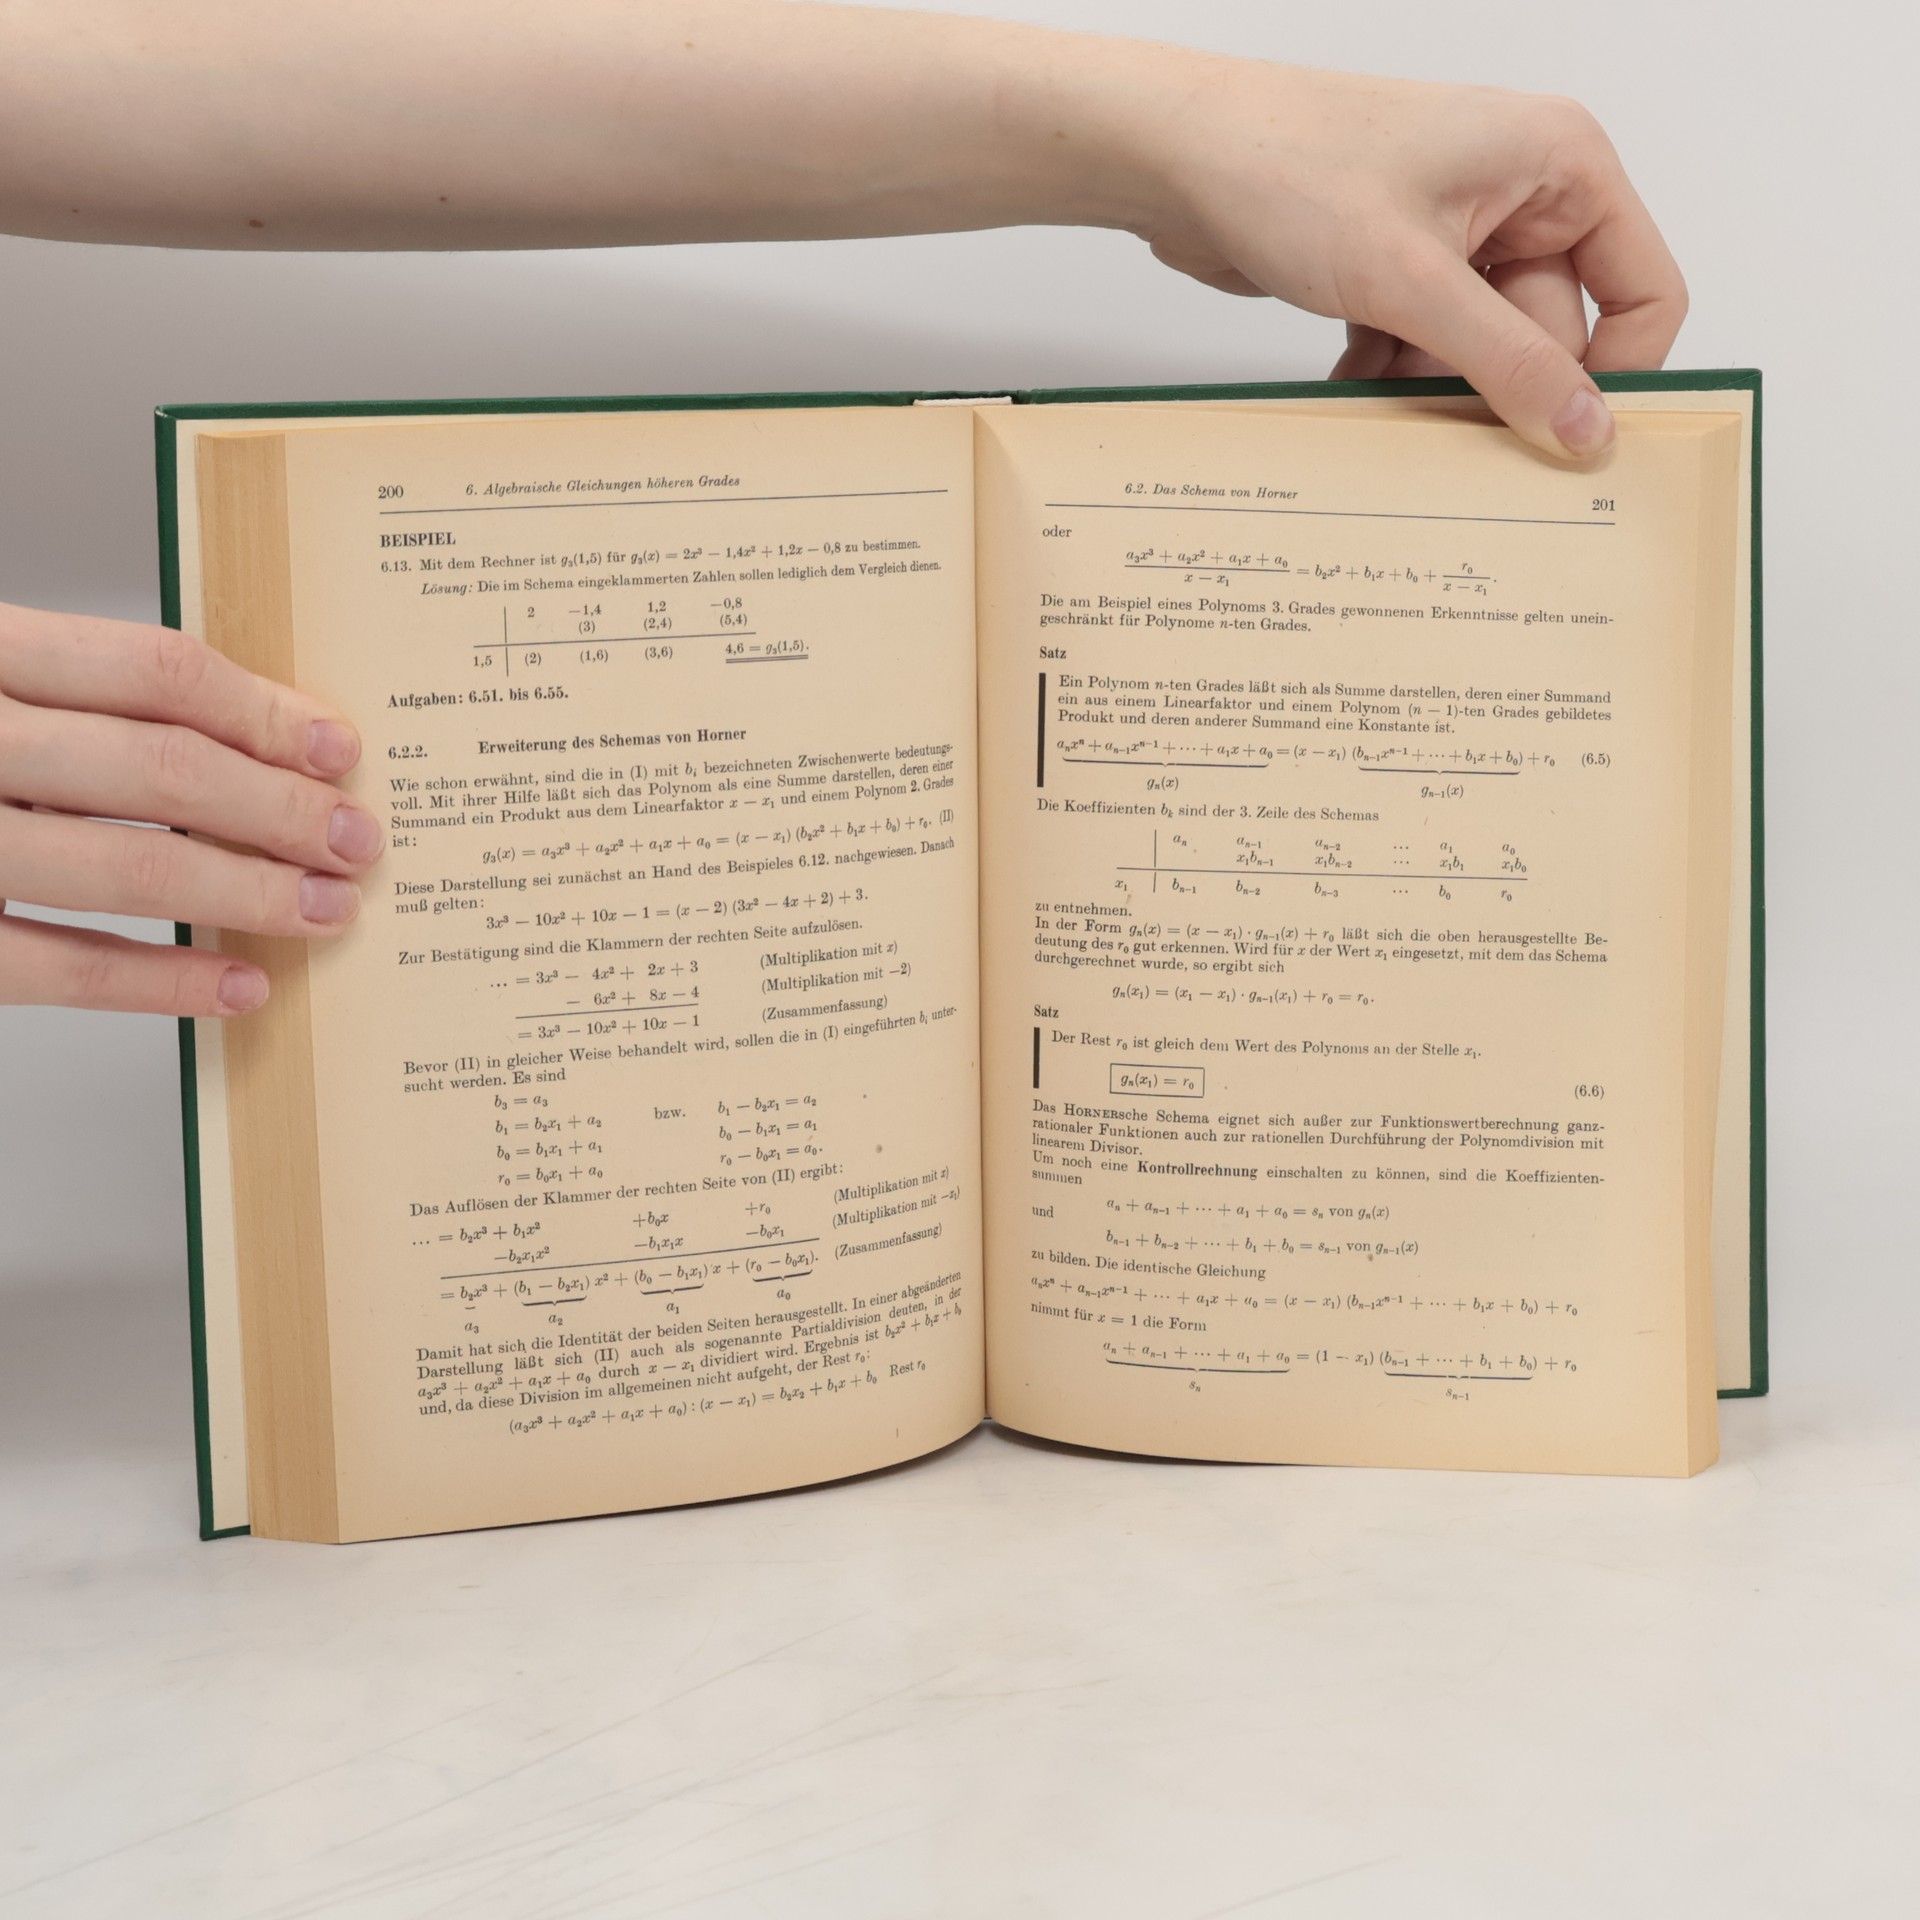 200 6. Algebraische Gleichungen höheren Grades
BEISPIEL
6.13. Mit dem Rechner ist g₃(1,5) für g₃(x) = 2x³ − 1,4x² + 1,2x − 0,8 zu bestimmen.
Lösung: Die im Schema eingeklammerten Zahlen sollen lediglich dem Vergleich dienen.
2 −1,4 1,2 −0,8
(3) (2,4) (5,4)
1,5 (2) (1,6) (3,6) 4,6 = g₃(1,5).
Aufgaben: 6.51. bis 6.55.
6.2.2. Erweiterung des Schemas von Horner
Wie schon erwähnt, sind die in (I) mit bᵢ bezeichneten Zwischenwerte bedeutungs-
voll. Mit ihrer Hilfe läßt sich das Polynom als eine Summe darstellen, deren einer
Summand ein Produkt aus dem Linearfaktor x − x₁ und einem Polynom 2. Grades
ist:
g₃(x) = a₃x³ + a₂x² + a₁x + a₀ = (x − x₁) (b₂x² + b₁x + b₀) + r₀. (II)
Diese Darstellung sei zunächst an Hand des Beispieles 6.12. nachgewiesen. Danach
muß gelten:
3x³ − 10x² + 10x − 1 = (x − 2) (3x² − 4x + 2) + 3.
Zur Bestätigung sind die Klammern der rechten Seite aufzulösen.
... = 3x³ − 4x² + 2x + 3 (Multiplikation mit x)
− 6x² + 8x − 4 (Multiplikation mit −2)
= 3x³ − 10x² + 10x − 1 (Zusammenfassung)
Bevor (II) in gleicher Weise behandelt wird, sollen die in (I) eingeführten bᵢ unter-
sucht werden. Es sind
b₃ = a₃
b₁ = b₂x₁ + a₂ bzw. b₁ − b₂x₁ = a₂
b₀ = b₁x₁ + a₁ b₀ − b₁x₁ = a₁
r₀ = b₀x₁ + a₀ r₀ − b₀x₁ = a₀.
Das Auflösen der Klammer der rechten Seite von (II) ergibt:
... = b₂x³ + b₁x² +b₀x +r₀ (Multiplikation mit x)
−b₂x₁x² −b₁x₁x −b₀x₁ (Multiplikation mit −x₁)
= b₂x³ + (b₁ − b₂x₁) x² + (b₀ − b₁x₁) x + (r₀ − b₀x₁). (Zusammenfassung)
a₃ a₂ a₁ a₀
Damit hat sich die Identität der beiden Seiten herausgestellt. In einer abgeänderten
Darstellung läßt sich (II) auch als sogenannte Partialdivision deuten, in der
a₃x³ + a₂x² + a₁x + a₀ durch x − x₁ dividiert wird. Ergebnis ist b₂x² + b₁x + b₀
und, da diese Division im allgemeinen nicht aufgeht, der Rest r₀:
(a₃x³ + a₂x² + a₁x + a₀) : (x − x₁) = b₂x₂ + b₁x + b₀ Rest r₀
6.2. Das Schema von Horner 201
oder
(a₃x³ + a₂x² + a₁x + a₀)/(x − x₁) = b₂x² + b₁x + b₀ + r₀/(x − x₁).
Die am Beispiel eines Polynoms 3. Grades gewonnenen Erkenntnisse gelten unein-
geschränkt für Polynome n-ten Grades.
Satz
Ein Polynom n-ten Grades läßt sich als Summe darstellen, deren einer Summand
ein aus einem Linearfaktor und einem Polynom (n − 1)-ten Grades gebildetes
Produkt und deren anderer Summand eine Konstante ist.
aₙxⁿ + aₙ₋₁xⁿ⁻¹ + ⋯ + a₁x + a₀ = (x − x₁) (bₙ₋₁xⁿ⁻¹ + ⋯ + b₁x + b₀) + r₀ (6.5)
gₙ(x) gₙ₋₁(x)
Die Koeffizienten bₖ sind der 3. Zeile des Schemas
aₙ aₙ₋₁ aₙ₋₂ ⋯ a₁ a₀
x₁bₙ₋₁ x₁bₙ₋₂ ⋯ x₁b₁ x₁b₀
x₁ bₙ₋₁ bₙ₋₂ bₙ₋₃ ⋯ b₀ r₀
zu entnehmen.
In der Form gₙ(x) = (x − x₁) · gₙ₋₁(x) + r₀ läßt sich die oben herausgestellte Be-
deutung des r₀ gut erkennen. Wird für x der Wert x₁ eingesetzt, mit dem das Schema
durchgerechnet wurde, so ergibt sich
gₙ(x₁) = (x₁ − x₁) · gₙ₋₁(x₁) + r₀ = r₀.
Satz
Der Rest r₀ ist gleich dem Wert des Polynoms an der Stelle x₁.
gₙ(x₁) = r₀ (6.6)
Das HORNERsche Schema eignet sich außer zur Funktionswertberechnung ganz-
rationaler Funktionen auch zur rationellen Durchführung der Polynomdivision mit
linearem Divisor.
Um noch eine Kontrollrechnung einschalten zu können, sind die Koeffizienten-
summen
aₙ + aₙ₋₁ + ⋯ + a₁ + a₀ = sₙ von gₙ(x)
und
bₙ₋₁ + bₙ₋₂ + ⋯ + b₁ + b₀ = sₙ₋₁ von gₙ₋₁(x)
zu bilden. Die identische Gleichung
aₙxⁿ + aₙ₋₁xⁿ⁻¹ + ⋯ + a₁x + a₀ = (x − x₁) (bₙ₋₁xⁿ⁻¹ + ⋯ + b₁x + b₀) + r₀
nimmt für x = 1 die Form
aₙ + aₙ₋₁ + ⋯ + a₁ + a₀ = (1 − x₁) (bₙ₋₁ + ⋯ + b₁ + b₀) + r₀
sₙ sₙ₋₁